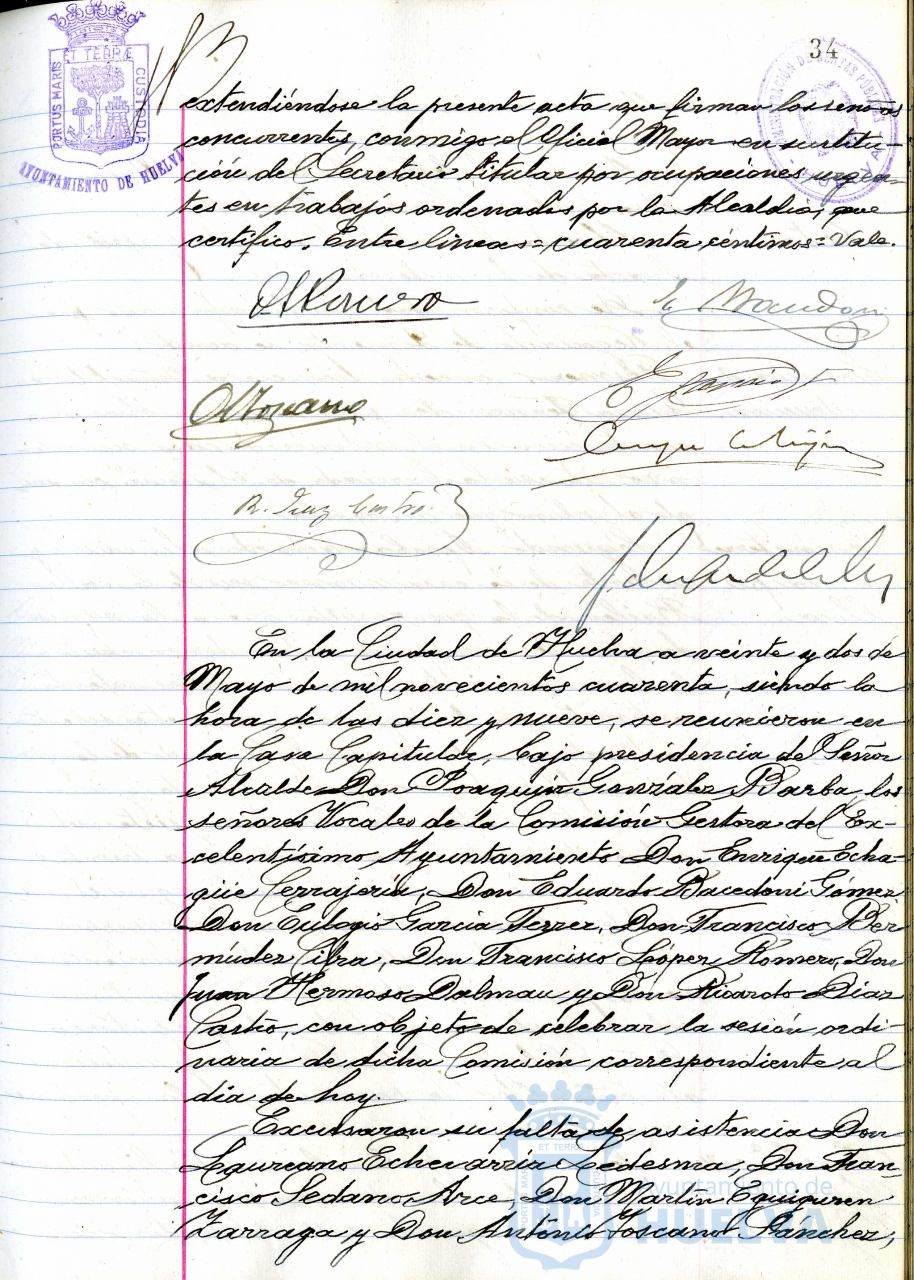 34
PORTUS MARIS ET TERRÆ CUSTODIA
AYUNTAMIENTO DE HUELVA
extendiéndose la presente acta que firman los señores
concurrentes, conmigo el Oficial Mayor en sustitu-
ción del Secretario titular por ocupaciones urgen-
tes en trabajos ordenados por la Alcaldía, que
certifico. Entre lineas = cuarenta céntimos = Vale.
R. Diaz Castro
En la Ciudad de Huelva a veinte y dos de
Mayo de mil novecientos cuarenta, siendo la
hora de las diez y nueve, se reunieron en
la Casa Capitular, bajo presidencia del Señor
Alcalde Don Joaquín González Barba, los
señores Vocales de la Comisión Gestora del Ex-
celentísimo Ayuntamiento Don Enrique Echa-
güe Cerrajería, Don Eduardo Bacedoni Gómez
Don Eulogio García Ferrer, Don Francisco Ber
múdez Cilra, Don Francisco López Romero, Don
Juan Hermoso Dalmau y Don Ricardo Díaz
Castro, con objeto de celebrar la sesión ordi-
naria de dicha Comisión correspondiente al
día de hoy.
Excusaron su falta de asistencia Don
Laureano Echevarría Ledesma, Don Fran-
cisco Sedano Arce, Don Martín Eguiguren
Zarraga y Don Antonio Toscano Sánchez,
Ayuntamiento de
HUELVA